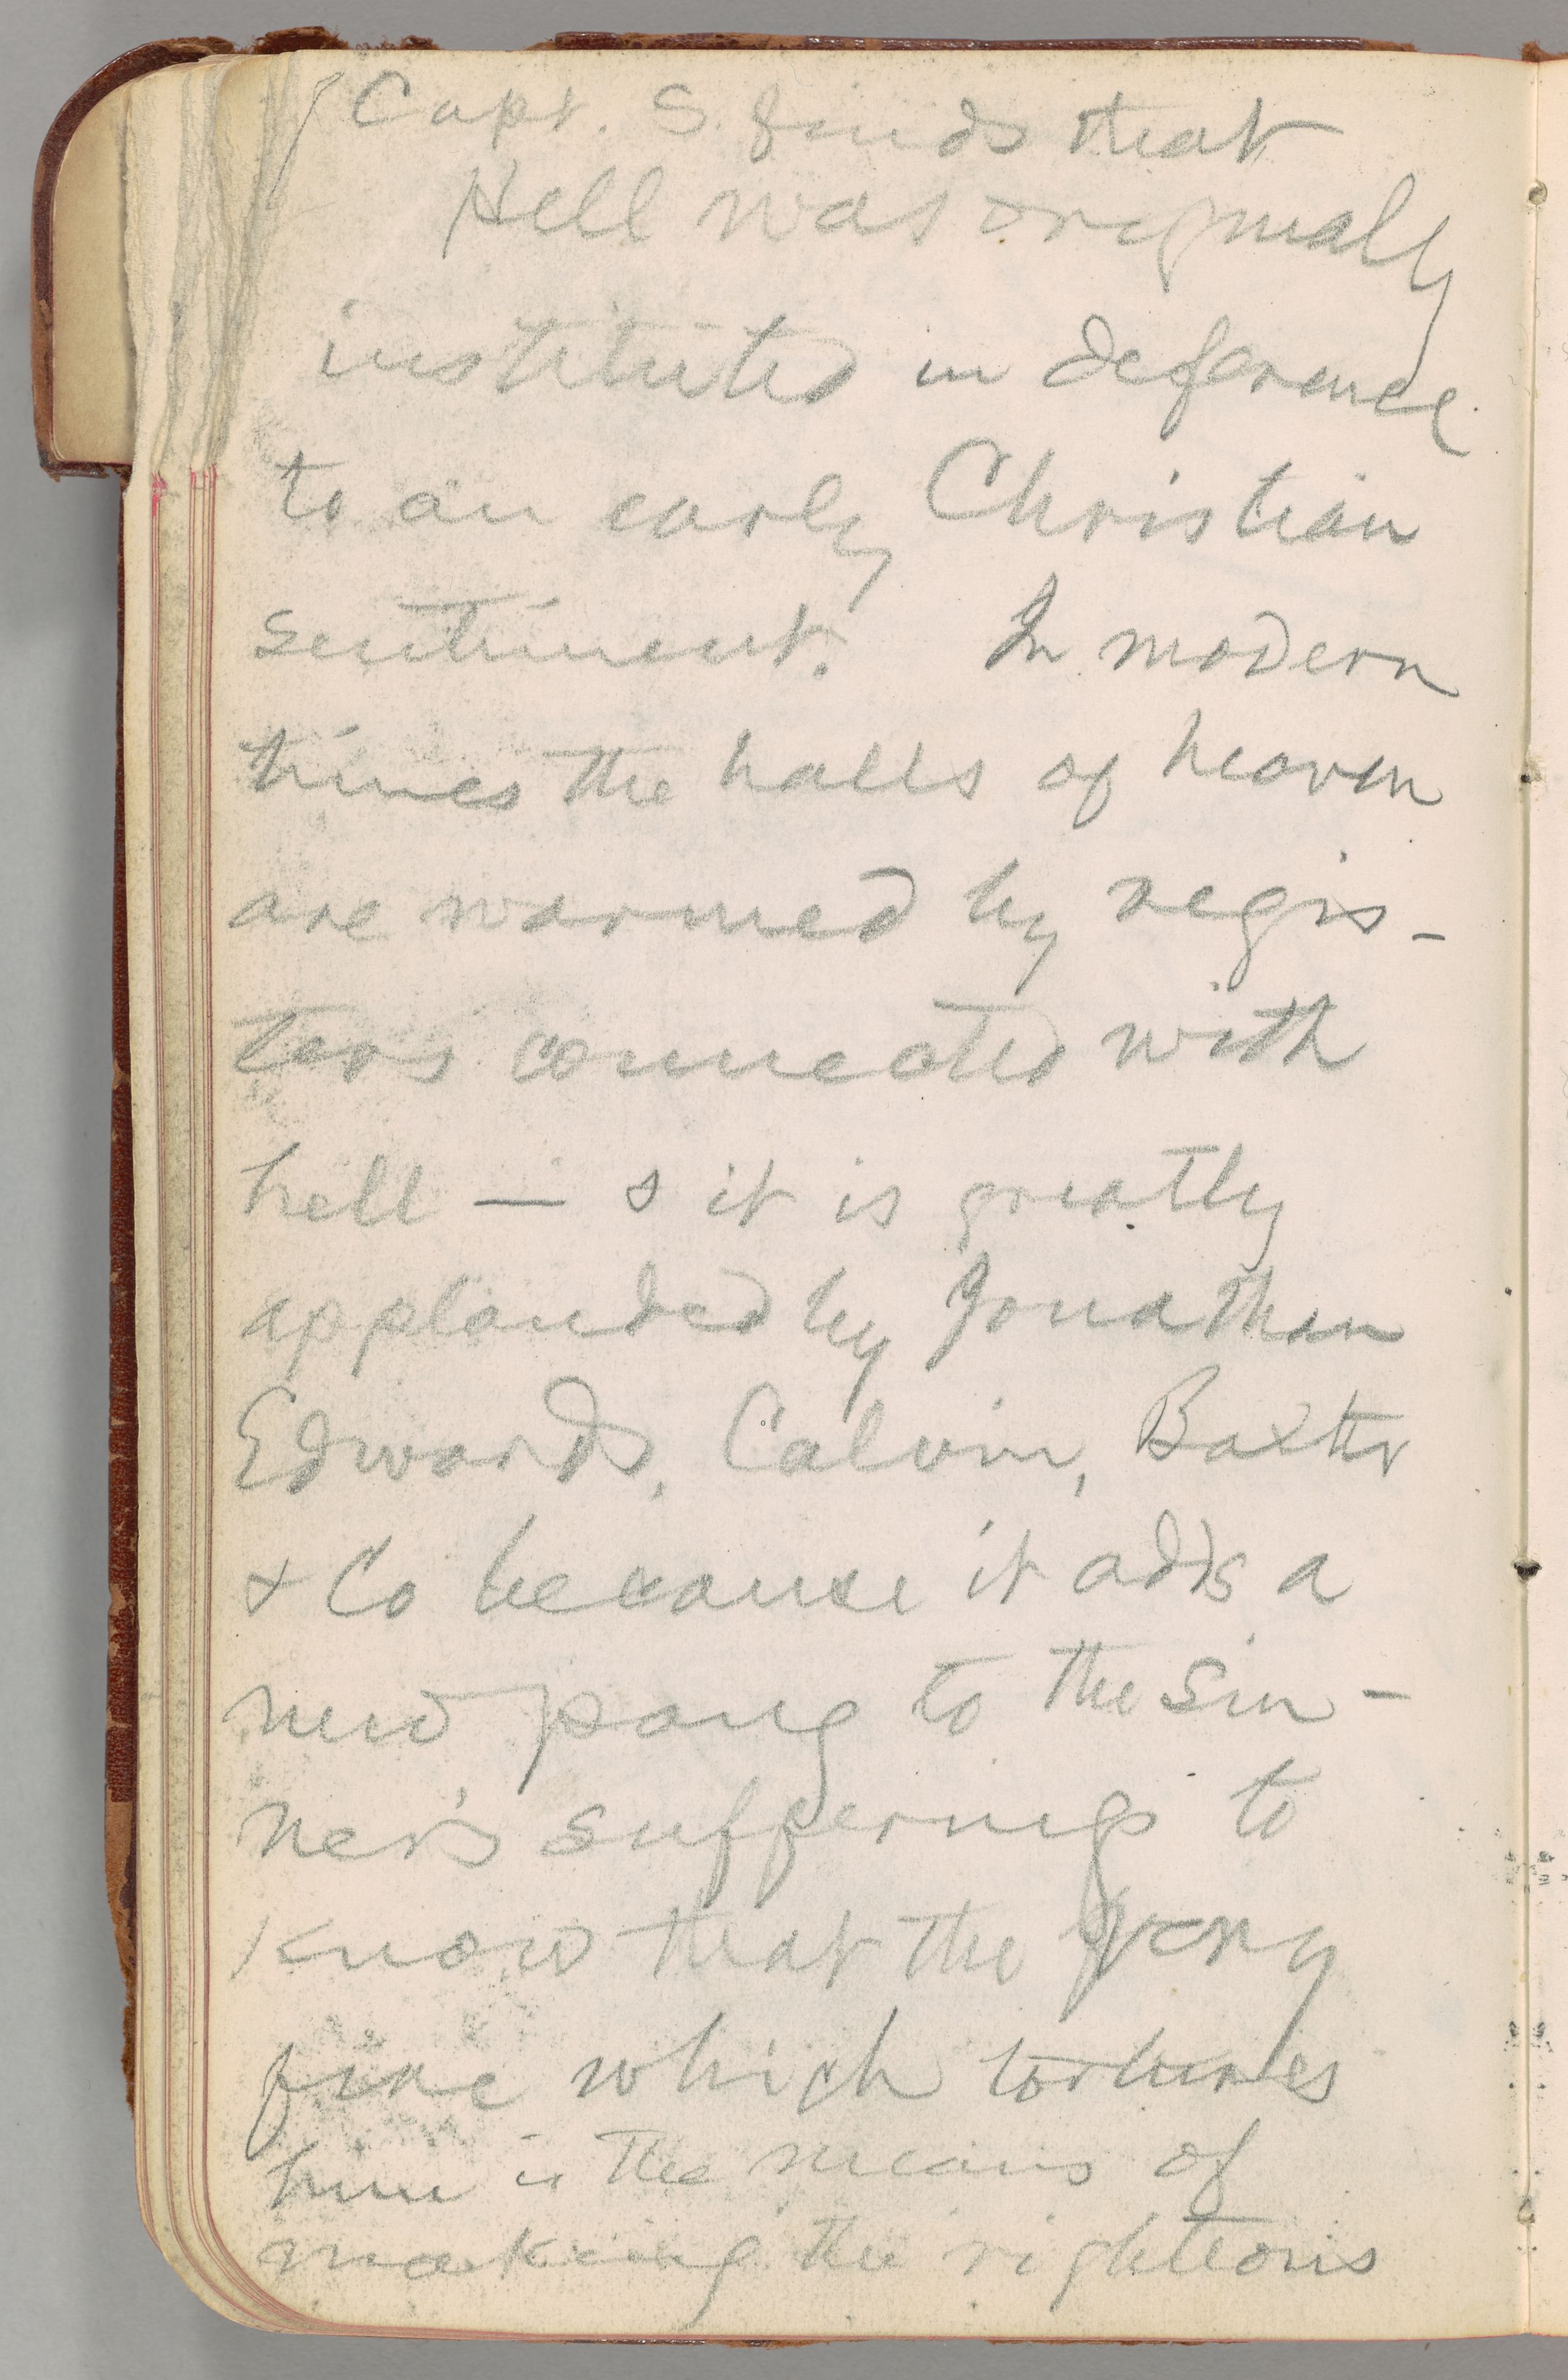 Capt. S. finds that
Hell was originally
instituted in deference
to an early Christian
sentiment. In modern
times the halls of heaven
are warmed by regis-
ters connected with
hell — & it is greatly
applauded by Jonathan
Edwards, Calvin, Baxter
& Co because it adds a
new pang to the sin-
ner's sufferings to
know that the very
fire which tortures
him is the means of
making the righteous